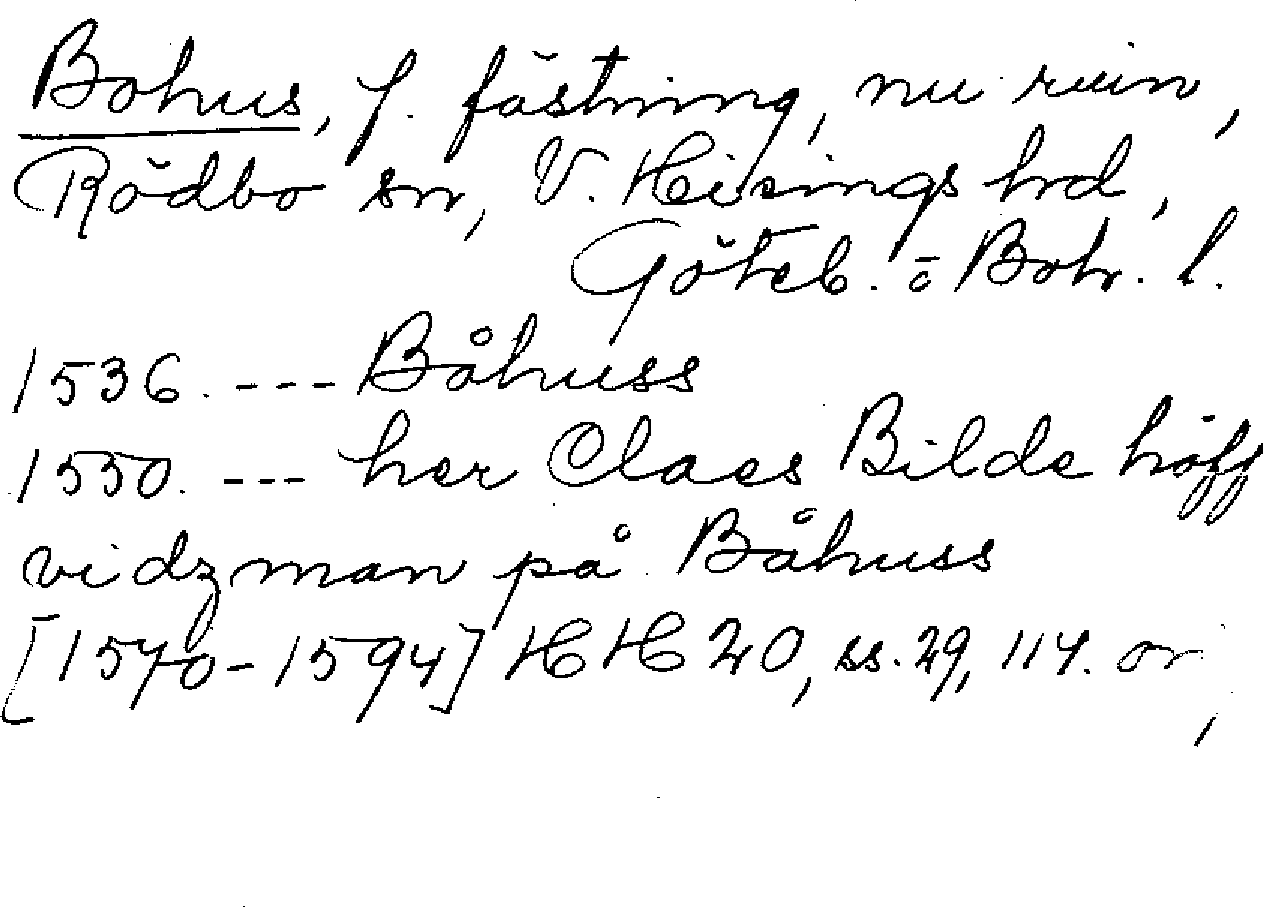 Bohus, f. fästning, nu ruin,
Rödbo sn, V. Hisings hrd,
Göteb. o Boh. l.
1536. --- Båhuss
1550. --- her Claes Bilde höff
vidzman på Båhuss
[1570-1594] HH 20, ss. 29, 114. or.